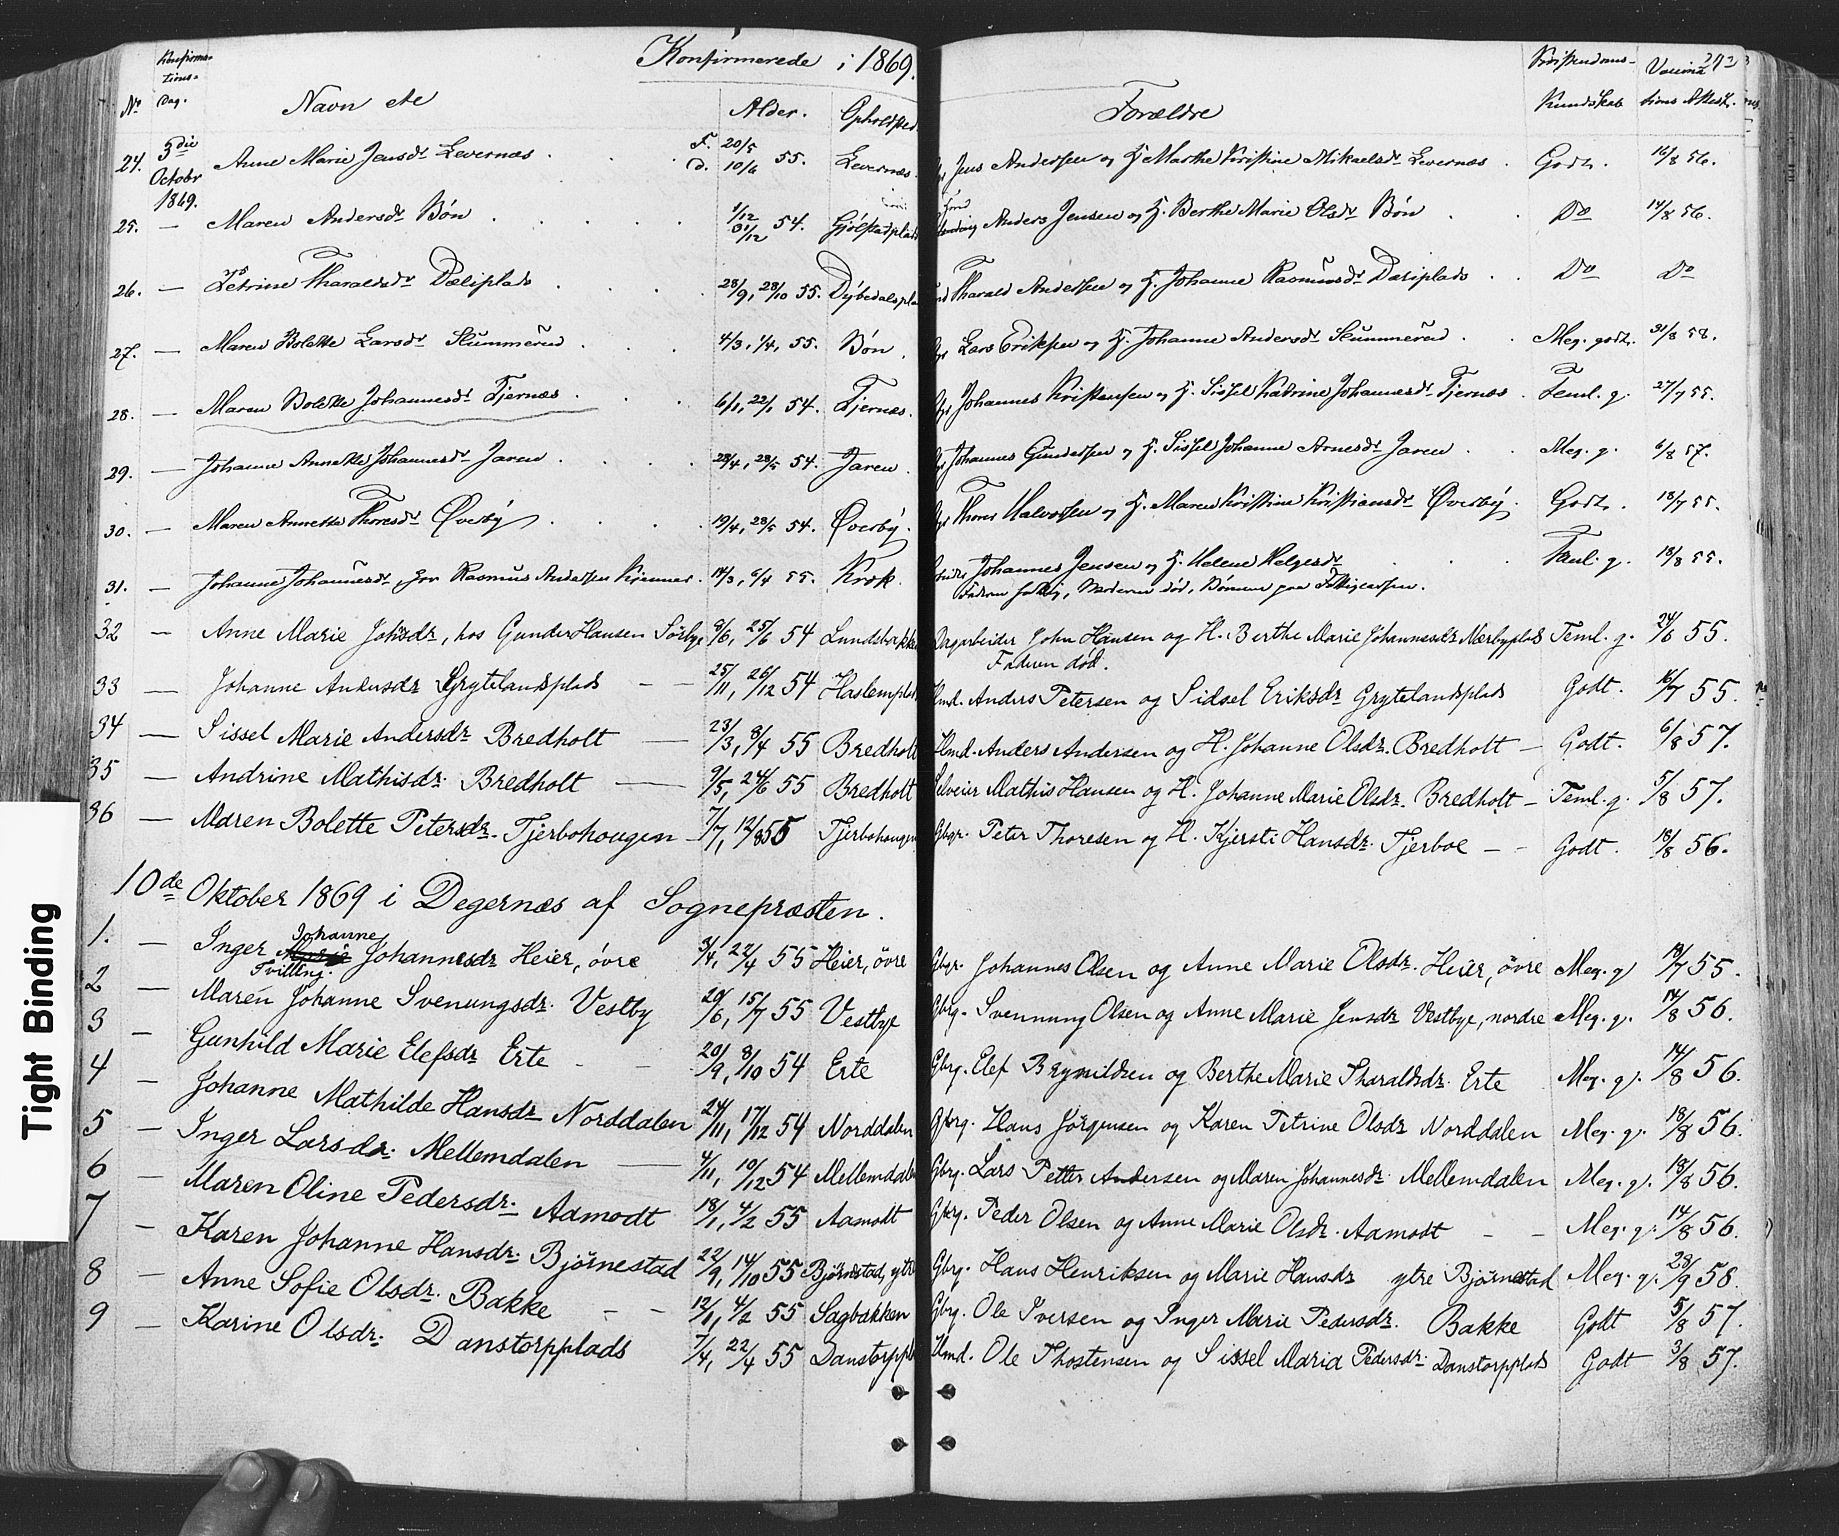 Konfirmerede i 1869.
No Konfirmations-Dag. Navn etc Alder. Opholdsted Forældre Kristendoms-Kundskab Vaccinations Attest.
24. 3die Octobr 1869. Anne Marie Jensdr Levernæs . F. 20/5 d. 10/6 55. Levernæs. Jens Andersen og H. Marthe Kristine Mikaelsdr Levernæs . Godt. 16/8 56.
25. — Maren Andersdr Bøn . 1/12 31/12 54. Gjølstadplads Anders Jensen og H. Berthe Marie Olsdr Bøn . Do 14/8 56.
26. — Petrine Tharaldsdr Dæliplads . 28/9, 28/10 55. Dybedalspla Tharald Andersen og H. Johanne Rasmusdr Dæliplads . Do Do
27. — Maren Bolette Larsdr Skummerud . 4/3, 1/4, 55. Bøn . Lars Eriksen og H. Johanne Andersdr Skummerud . Meg. godt. 31/8 58.
28. — Maren Bolette Johannesdr Tjernæs . 6/1, 22/1 54. Tjernæs. Johannes Kristensen og H. Sissel Katrine Johannesdr Tjernæs . Teml. g. 27/7 55.
29. — Johanne Annette Johannesdr Jaren . 23/4, 28/5 54. Jaren . Johannes Gundersen og H. Sissel Johanne Arnesdr Jaren . Meg. g. 6/8 57.
30. — Maren Annette Thoresdr Øverby . 19/4, 28/5 54. Øverby . Thores Halvorsen og H. Maren Kristine Kristiansdr Øverby . Godt. 18/7 55.
31. — Johanne Johannesdr, for Rasmus Andersen Kjennes . 14/3, 9/4 55. Krok. Johannes Jensen og H. Helene Helgesdr . Teml. g. 18/8 55.
Moderen død, Børnene paa Fattigcassen.
32 — Anne Marie Johsdr, hos Gunder Hansen Sørbye 8/6, 25/6 54 Lundsbakke Dagarbeider John Hansen og H. Berthe Marie Johannesdr Nærbyplads Teml. g. 24/6 55.
Faderen død.
33 — Johanne Andersdr Grytelandsplads — — 25/11, 26/12 54 Haslemplad Hmd. Anders Petersen og Sidsel Eriksdr Grytelandsplads Godt. 16/7 55.
34 — Sissel Marie Andersdr Bredholt — 23/3, 8/4 55 Bredholt Hmd. Anders Andersen og H. Johanne Olsdr. Bredholt — Godt. 6/8 57.
35 — Andrine Mathisdr. Bredholt — 9/5, 24/6 55 Bredholt Selveier Mathis Hansen og H. Johanne Marie Olsdr. Bredholt — Teml. g. 5/8 57.
36 — Maren Bolette Petersdr. Tjerbohougen — 7/7, 12/8 55 Tjerbohougen Gbgr. Peter Thoresen og H. Kjersti Hansdr. Tjerboe — - Godt. 18/8 56.
10de Oktober 1869 i Degernæs af Sognepræsten.
1. — Inger Johanne Johannesdr Heier, övre 3/4, 22/4 55 Heier, övre Gbgr. Johannes Olsen og Anne Marie Olsdr. Heier, övre Meg. g 19/7 55.
Tvilling.
2 — Maren Johanne Svenungsdr. Vestby 20/6, 15/7 55 Vestbye Gbrg. Svennung Olsen og Anne Marie Jensdr Vestbye, nordre Meg. g. 14/8 56.
3 — Gunhild Marie Elefsdr Erte - - 20/9, 8/10 54 Erte Gbrg. Elef Brynildsen og Berthe Marie Tharaldsdr. Erte Meg. g. 14/8 56.
4 — Johanne Mathilde Hansdr Norddalen 24/11, 17/12 54 Norddalen Gbrg. Hans Jörgensen og Karen Petrine Olsdr Norddalen Meg. g. 18/8 56.
5 — Inger Larsdr. Mellemdalen — 4/11, 10/12 54 Mellemdalen Gbrg. Lars Petter Andersen og Maren Johannesdr Mellemdalen Meg. g. 18/8 56.
6 — Maren Oline Pedersdr. Aamodt 18/1, 4/2 55 Aamodt Gbrg. Peder Olsen og Anne Marie Olsdr. Aamodt - - Meg. g. 14/8 56.
7 — Karen Johanne Hansdr. Bjørnestad 22/9, 14/10 55 Bjørnestad, ytre Gbrg. Hans Henriksen og Marie Hansdr ytre Bjørnestad Meg. g. 28/9 58.
8 — Anne Sofie Olsdr. Bakke - — 12/1, 4/2 55 Sagbakken Gbrg. Ole Iversen og Inger Marie Pedersdr. Bakke Godt 5/8 57.
9 — Karine Olsdr. Danstorpplads 7/4, 22/4 55 Danstorppl Hmd. Ole Thostensen og Sissel Maria Pedersdr. Danstorpplads Godt 3/8 57.
Tight Binding